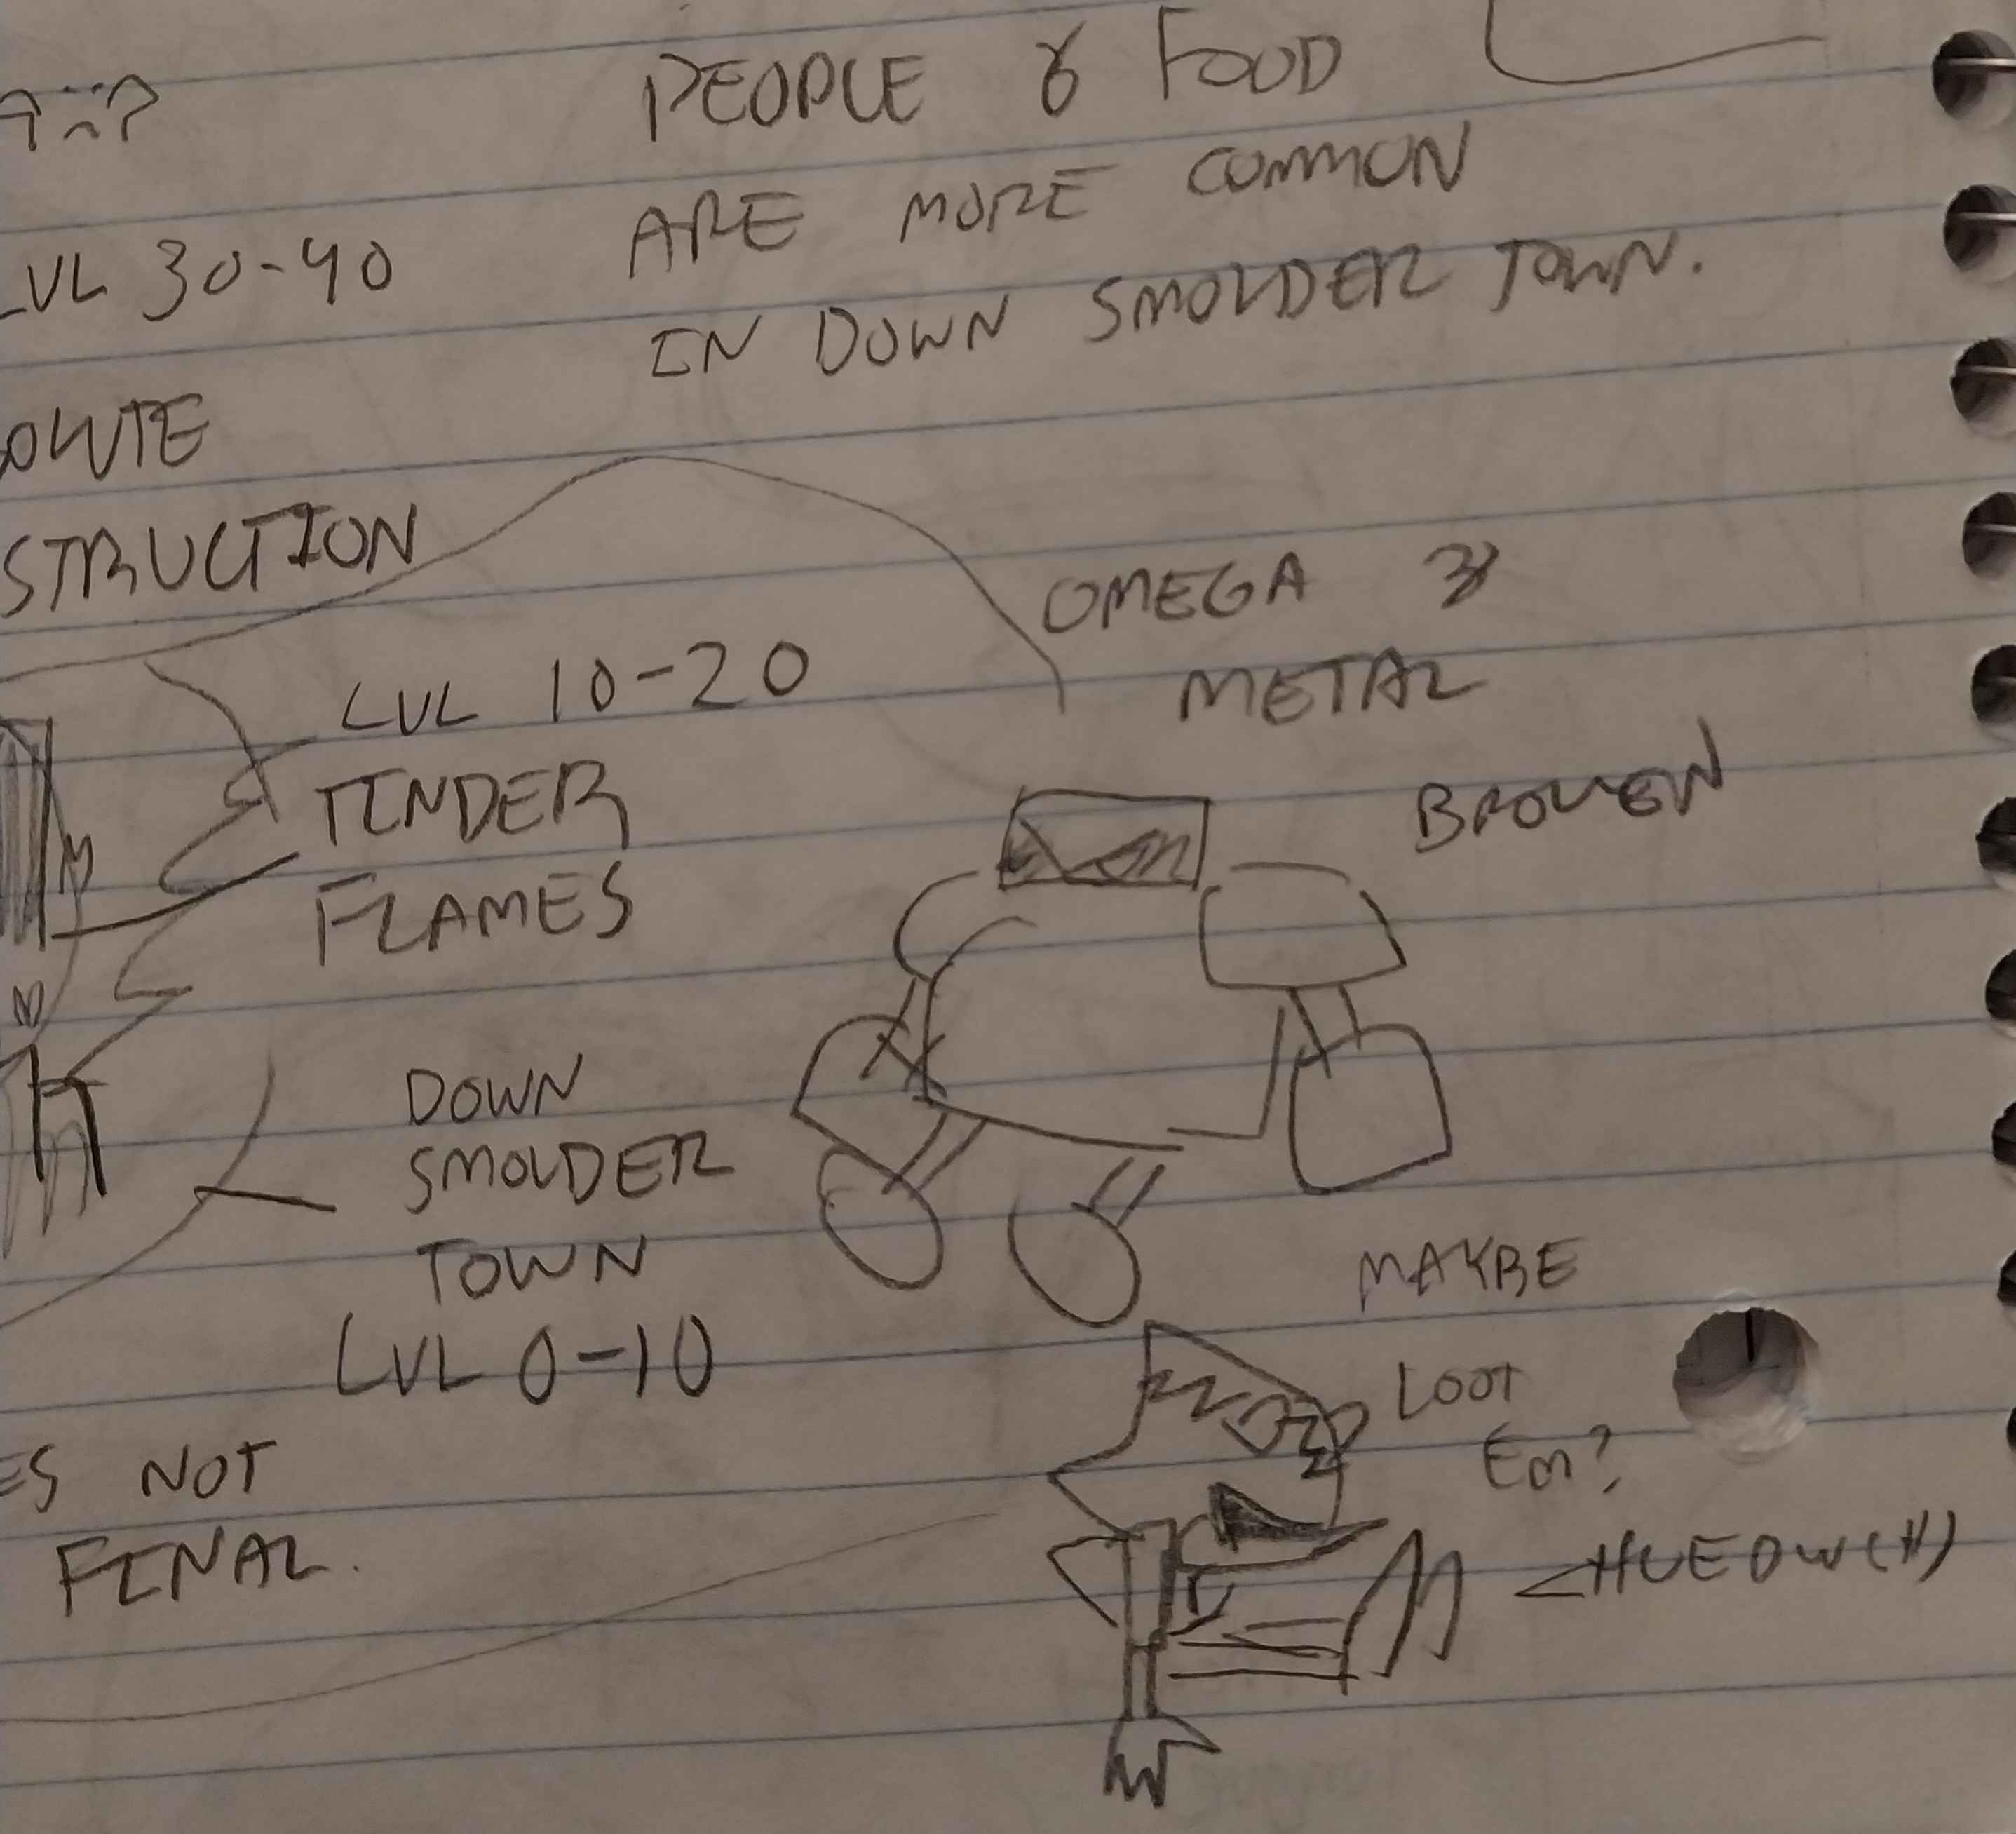 PEOPLE & FOOD
ARE MORE COMMON
IN DOWN SMOLDER TOWN.
LVL 30-40
STRUCTION
OMEGA
METAL
BROKEN
LVL 10-20
TINDER
FLAMES
DOWN
SMOLDER
TOWN
LVL 0-10
ES NOT
FINAL.
MAYBE
LOOT
EM?